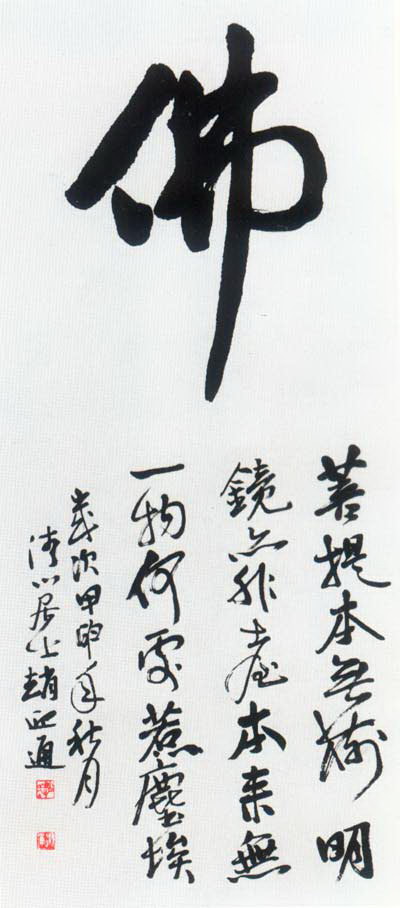 佛
菩提本无樹明
鏡亦非臺本来無
一物何處惹塵埃
歲次甲申年秋月
居士趙通